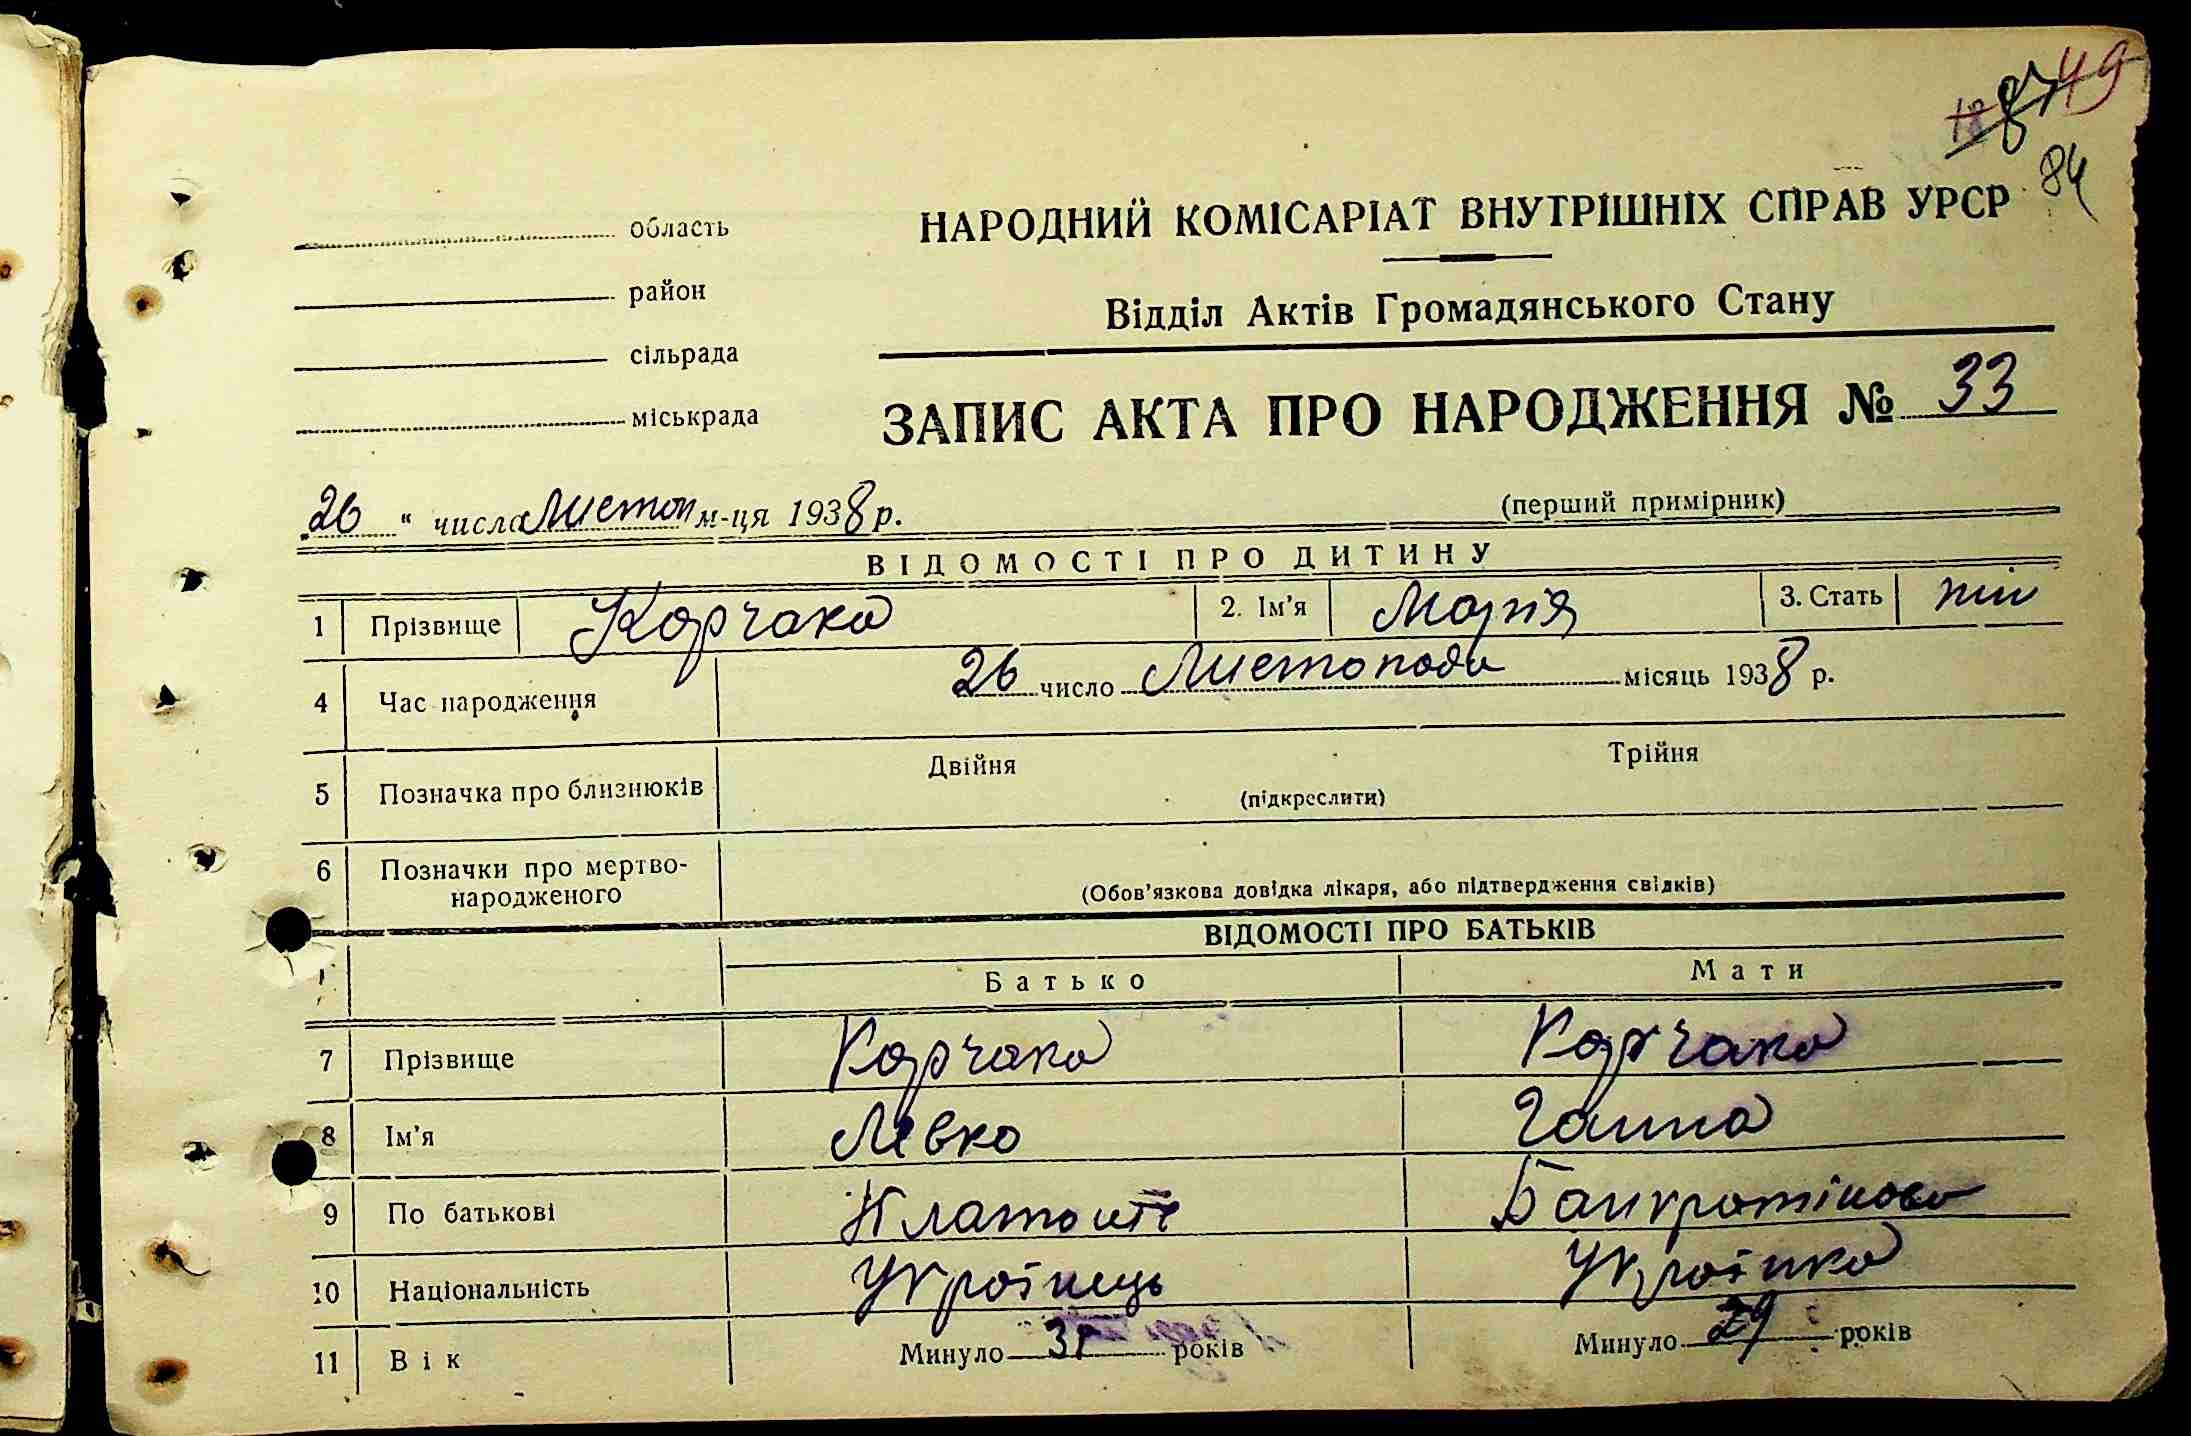 49
84
область
район
сільрада
міськрада
НАРОДНИЙ КОМІСАРІАТ ВНУТРІШНІХ СПРАВ УРСР
Відділ Актів Громадянського Стану
ЗАПИС АКТА ПРО НАРОДЖЕННЯ № 33
„26 “ числа Листоп м-ця 1938 р.
(перший примірник)
ВІДОМОСТІ ПРО ДИТИНУ
1 Прізвище Корчака 2. Ім'я Марія 3. Стать
4 Час народження 26 число Листопада місяць 1938 р.
5 Позначка про близнюків Двійня (підкреслити) Трійня
6 Позначки про мертво-
народженого (Обов'язкова довідка лікаря, або підтвердження свідків)
ВІДОМОСТІ ПРО БАТЬКІВ
Батько Мати
7 Прізвище Корчака Корчака
8 Ім'я Левко Ганна
9 По батькові
10 Національність Українець Українка
11 Вік Минуло років Минуло 29 років